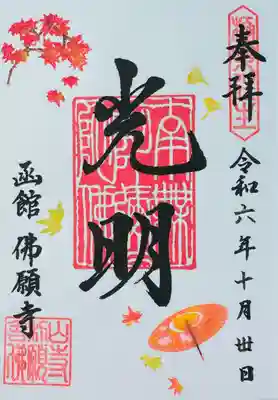 奉拝
令和六年十月廿日
光明
函館 佛願寺